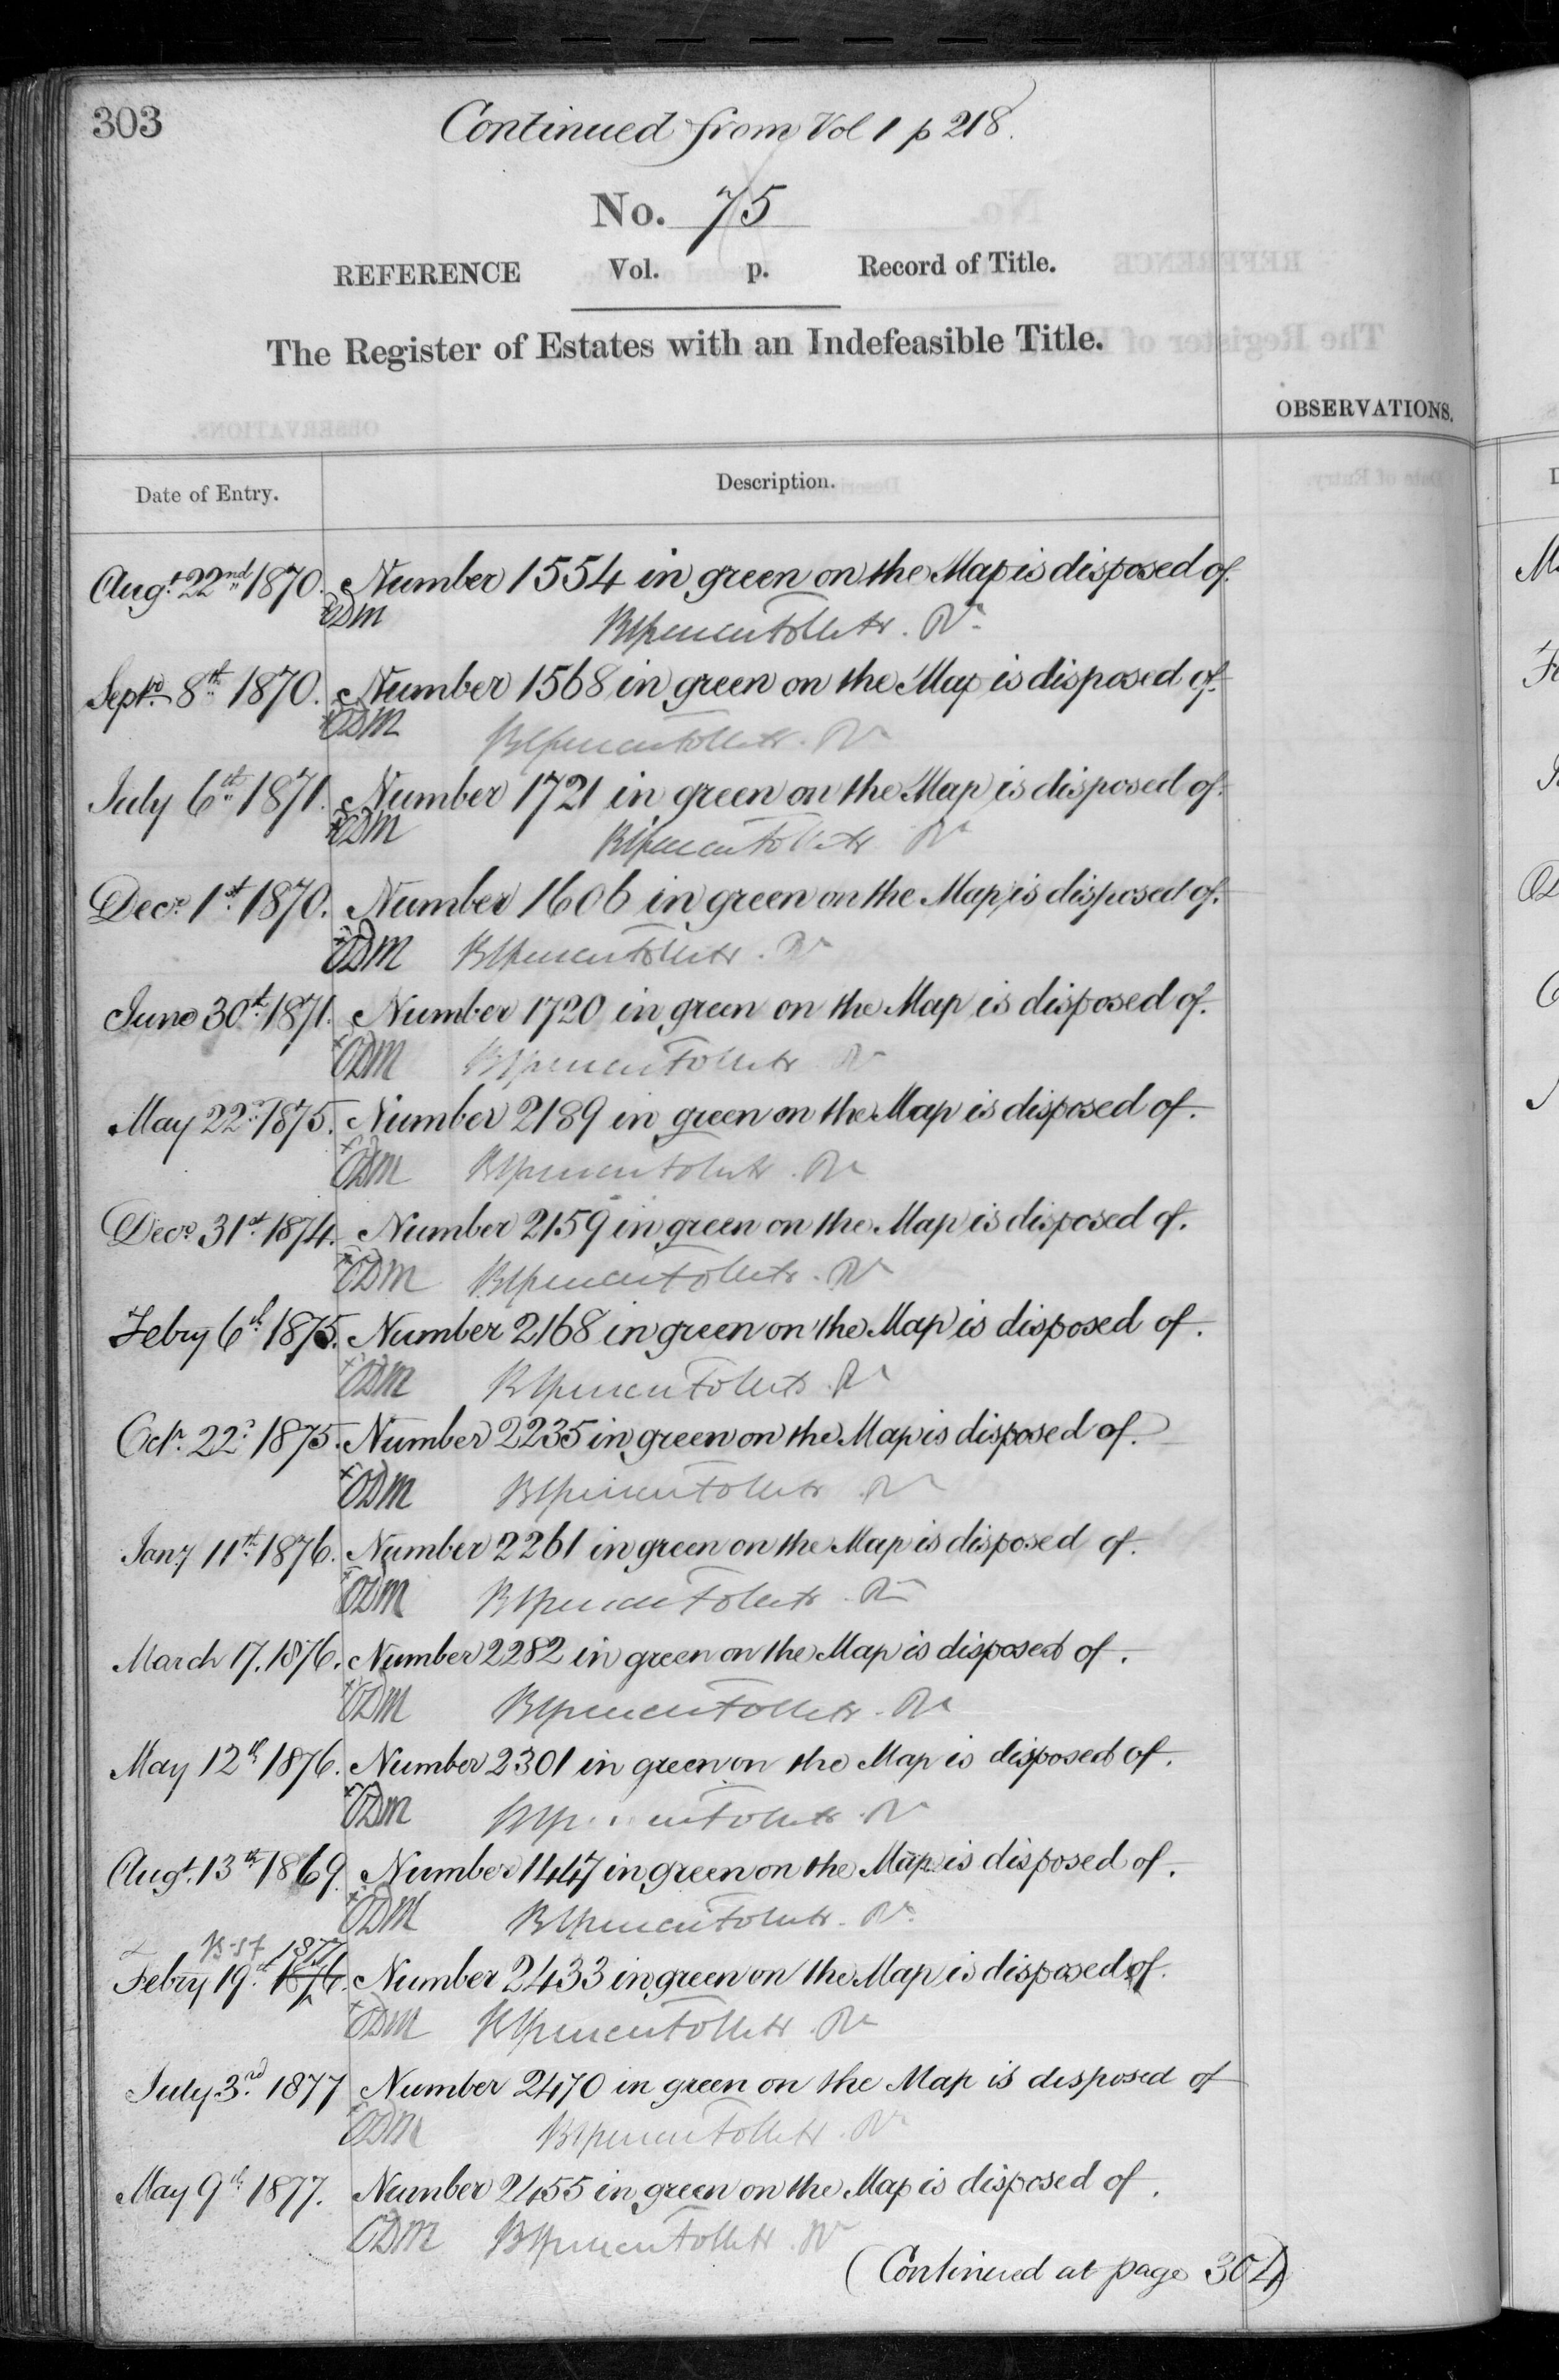 303
Continued from Vol 1 p 218.
No. 75
REFERENCE Vol. p. Record of Title.
The Register of Estates with an Indefeasible Title.
OBSERVATIONS.
Date of Entry. Description.
Augt. 22nd 1870. Number 1554 in green on the Map is disposed of.
ODM
Septr. 8th 1870. Number 1568 in green on the Map is disposed of.
ODM
July 6th 1871. Number 1721 in green on the Map is disposed of.
ODM
Decr. 1st 1870. Number 1606 in green on the Map is disposed of.
ODM
June 30th 1871. Number 1720 in green on the Map is disposed of.
ODM
May 22d 1875. Number 2189 in green on the Map is disposed of.
ODM
Decr. 31st 1874. Number 2159 in green on the Map is disposed of.
ODM
Febry 6th 1875. Number 2168 in green on the Map is disposed of.
ODM
Octr. 22d 1875. Number 2235 in green on the Map is disposed of.
ODM
Jany 11th 1876. Number 2261 in green on the Map is disposed of.
ODM
March 17. 1876. Number 2282 in green on the Map is disposed of.
ODM
May 12th 1876. Number 2301 in green on the Map is disposed of.
ODM
Augt. 13th 1869. Number 1447 in green on the Map is disposed of.
ODM
1877
Febry 19th 1876. Number 2433 in green on the Map is disposed of.
ODM
July 3rd 1877 Number 2470 in green on the Map is disposed of
ODM
May 9th 1877. Number 2455 in green on the Map is disposed of.
ODM
(Continued at page 304)